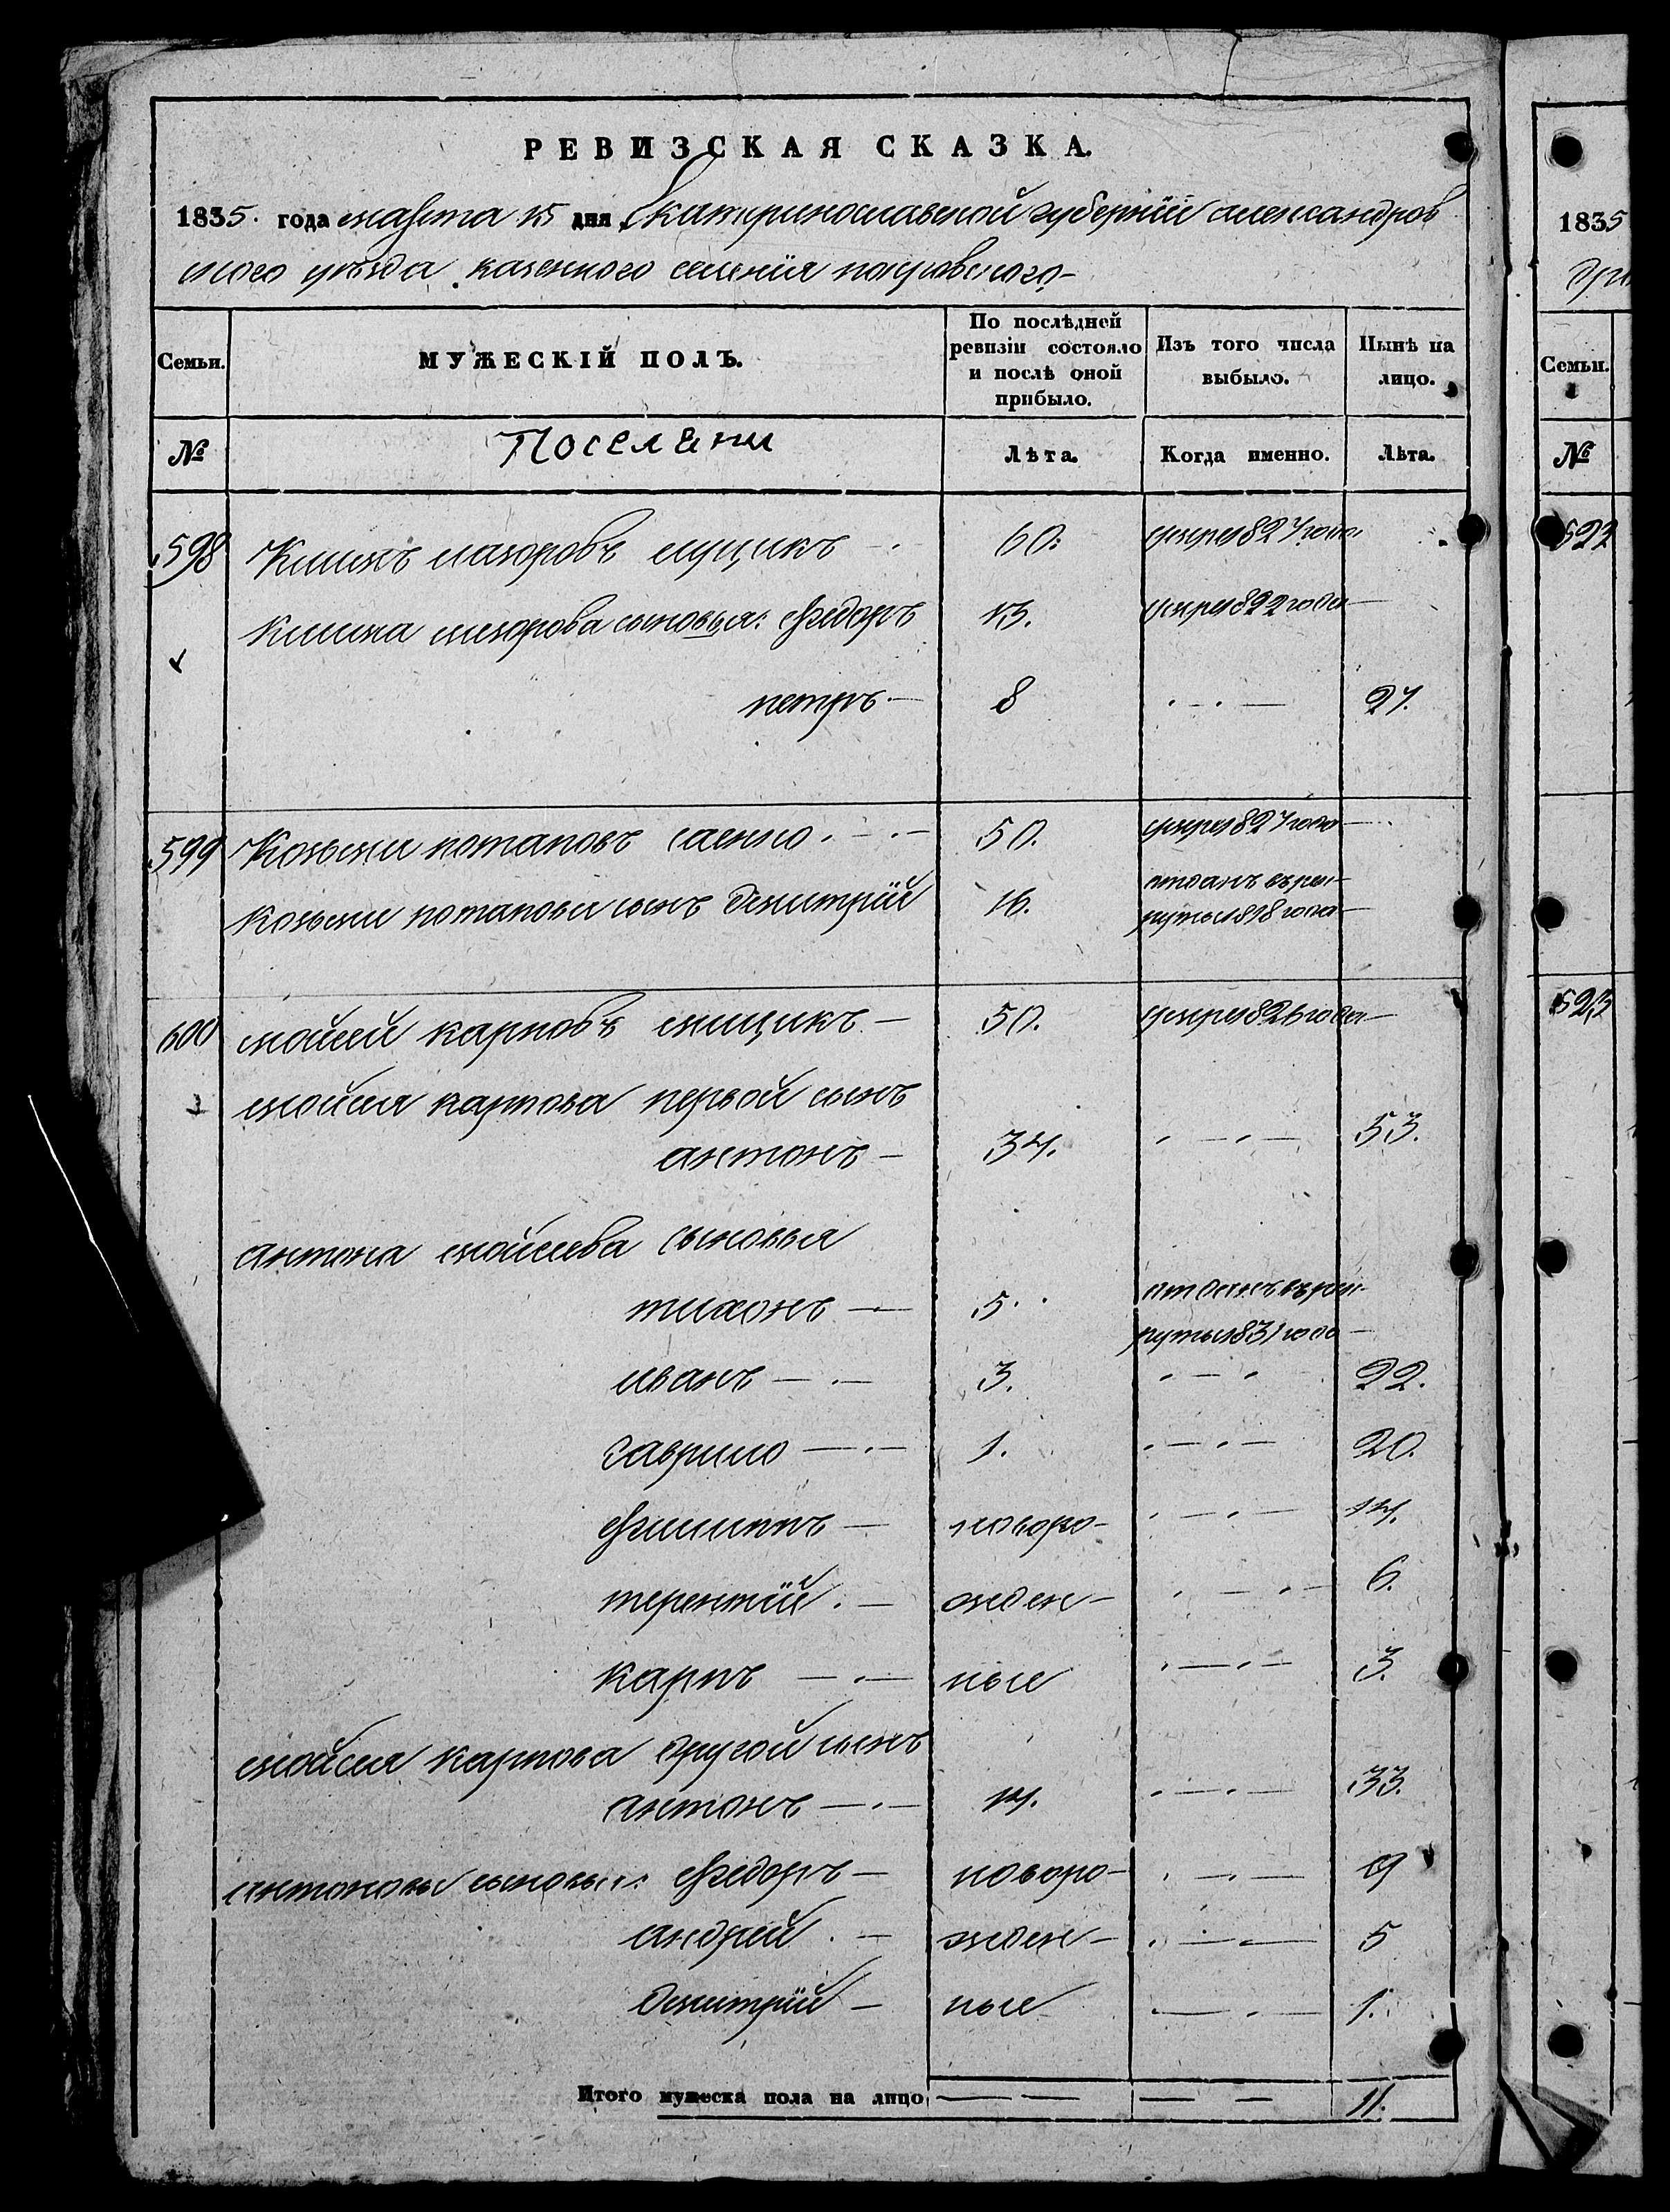 РЕВИЗСКАЯ СКАЗКА.
1835. года марта 15 дня Екатеринославской губерніи александров
ского уѣзда казенного селенія покровского
Семьи.
МУЖЕСКІЙ ПОЛЪ.
По послѣдней ревизіи состояло и послѣ оной прибыло.
Изъ того числа выбыло.
Нынѣ на лицо.
№
Поселяни
Лѣта.
Когда именно.
Лѣта.
598 Климъ лазоровъ 60. умре 1827 года
Клима лазорова сыновья: Федоръ 13. умре 1822 года
петръ 8 27.
599 Козьма потаповъ саенко 50. умре 1827 года
козьми потапова сынъ Дмитрій 16. отданъ въ рек-
руты 1818 года
600 мойсей карповъ 50. умре 1826 года
мойсея карпова первой сынъ
антонъ 34. 53.
антона мойсеева сыновья
тихонъ 5. отданъ въ рек-
руты 1831 года
иванъ 3. 22.
гаврило 1. 20.
Филиппъ новоро- 14.
терентій жден- 6.
карпъ ные 3.
мойсея карпова другой сынъ
антонъ 14. 33.
антоновы сыновья: Федоръ новоро- 9
андрей жден- 5
Дмитрій ные 1.
Итого мужеска пола на лицо 11.
1835
Семьи.
№
522
523